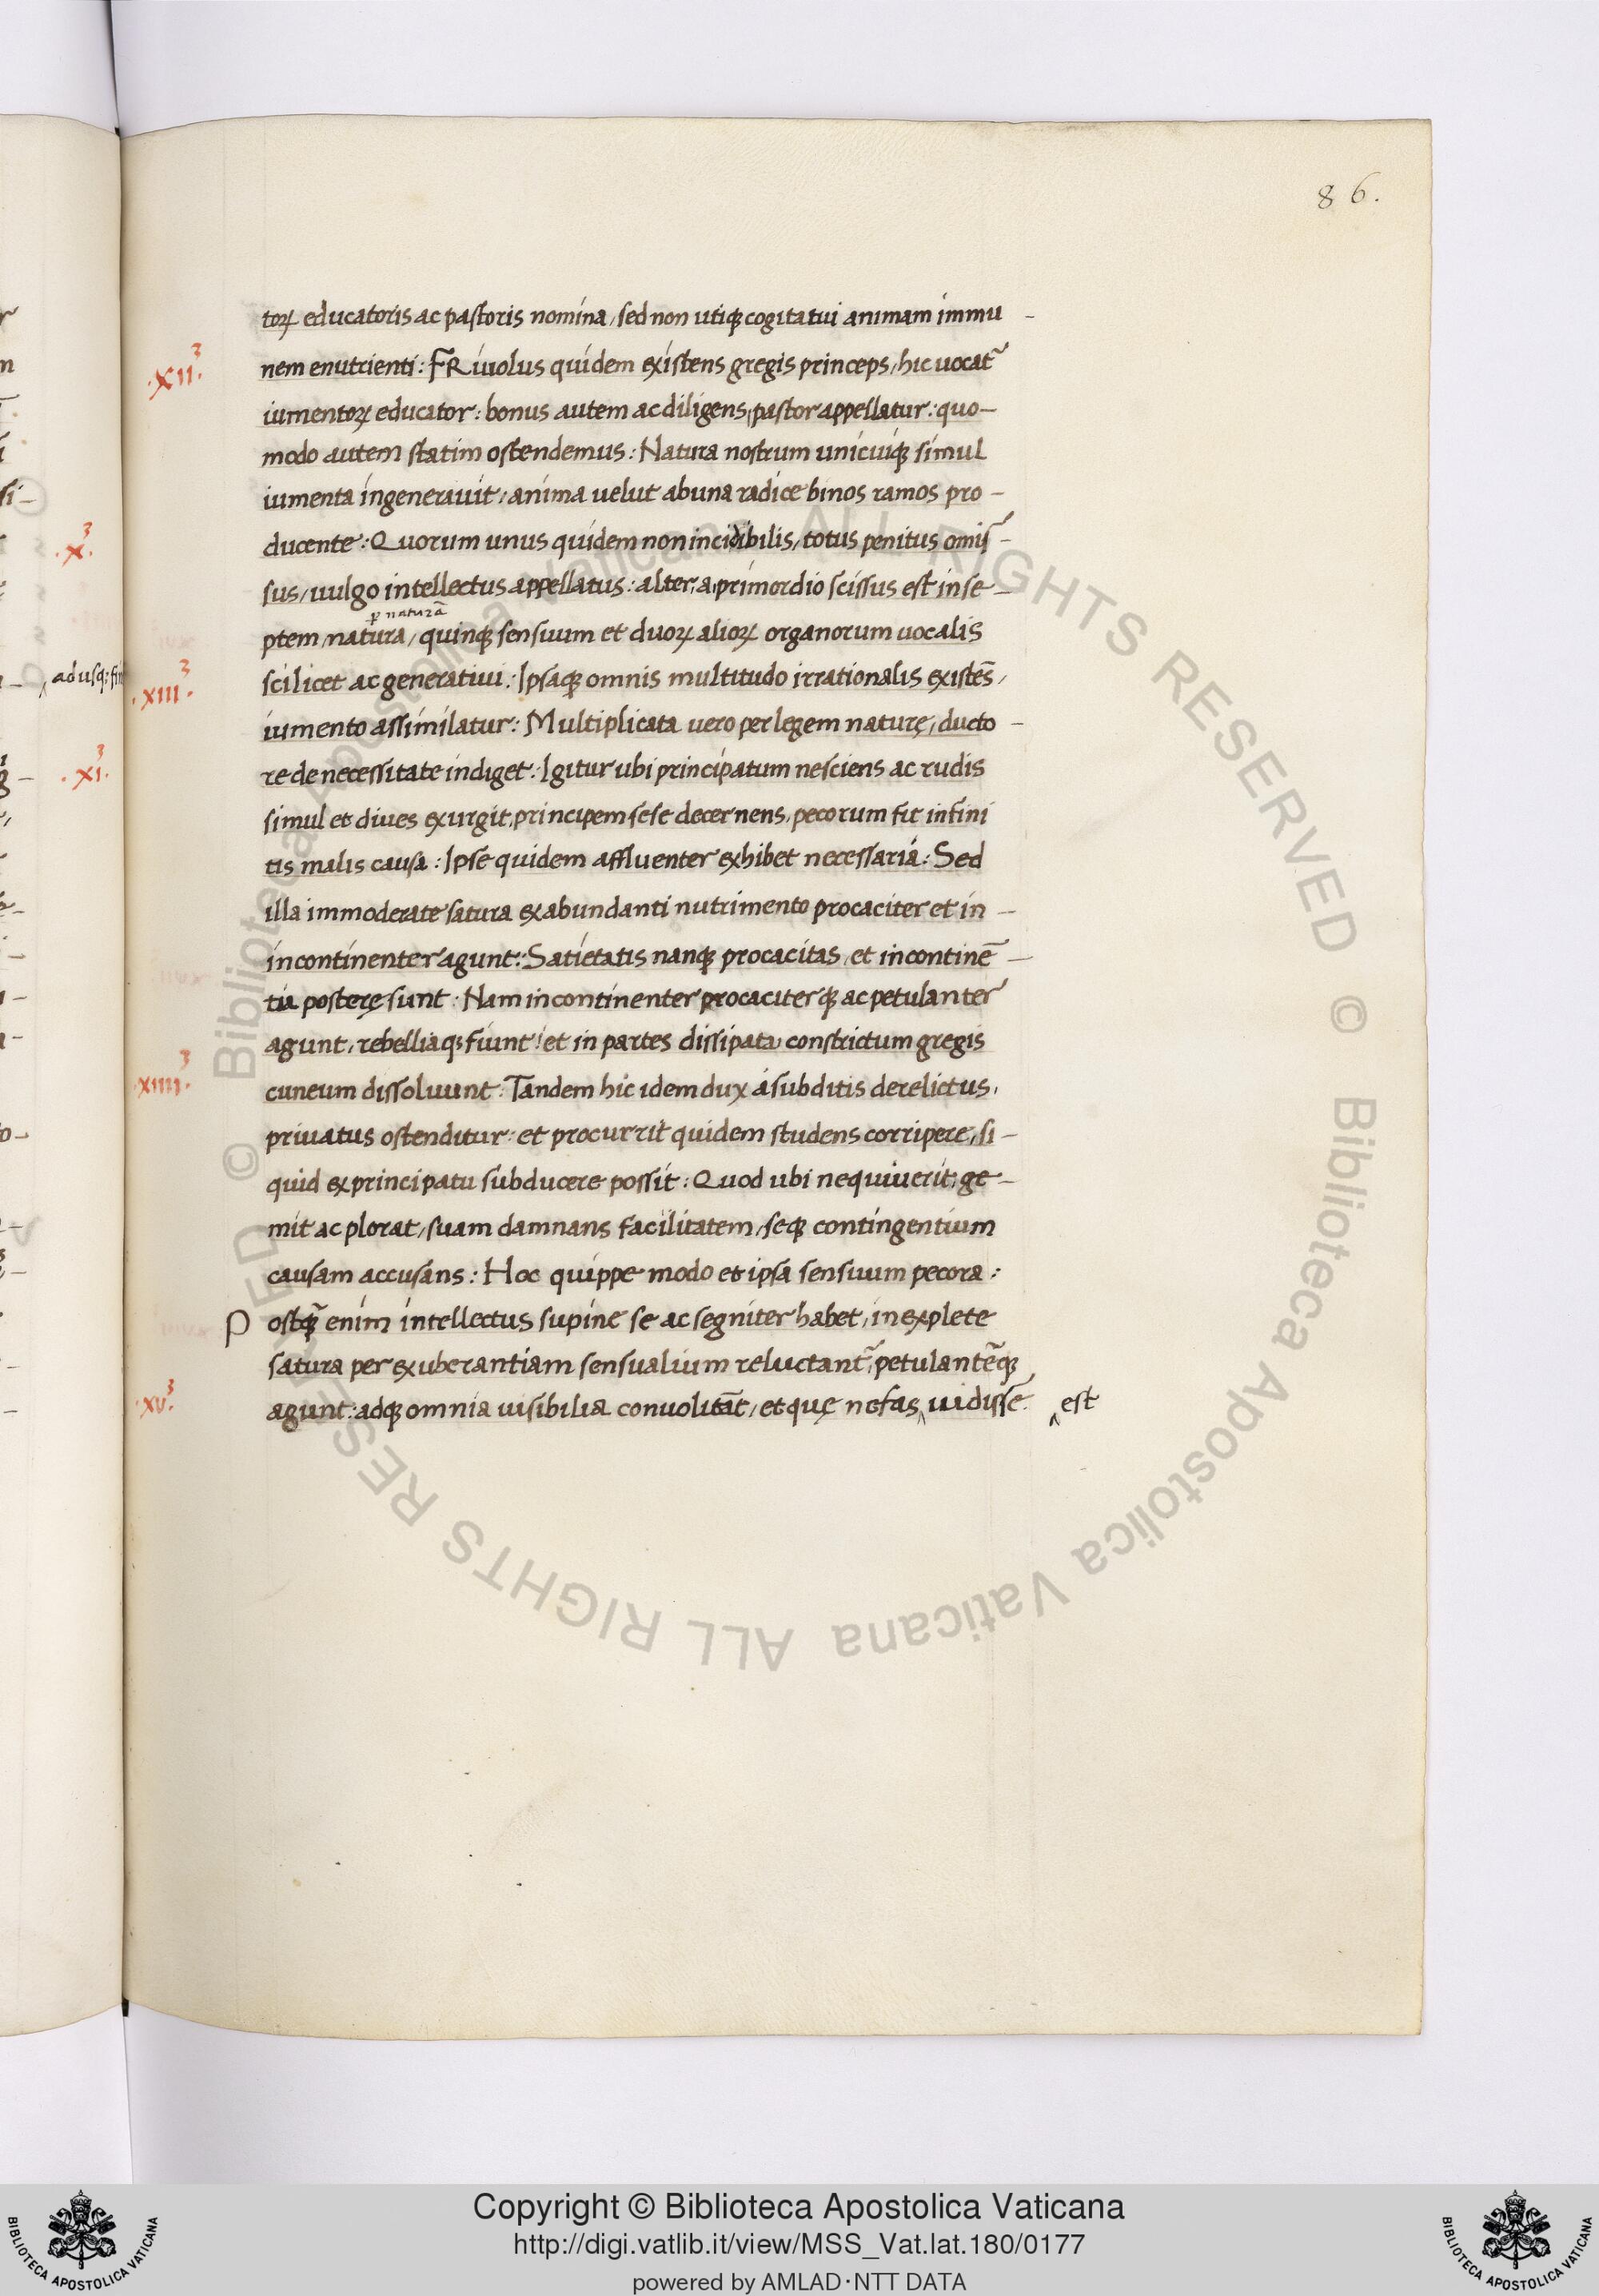 86.
torꝝ educatoris ac pastoris nomina, sed non utiqꝫ cogitatui animam immu-
.XII.3
nem enutrienti: FRiuolus quidem existens gregis princeps, hic uocat᷑
iumentorꝝ educator: bonus autem ac diligens, pastor appellatur: quo-
modo autem statim ostendemus: Natura nostrum unicuiqꝫ simul
iumenta ingenerauit, anima uelut ab una radice binos ramos pro-
ducente: Quorum unus quidem non incidibilis, totus penitus omis-
sus, uulgo intellectus appellatus: alter, a primordio scissus est in se-
ꝑ naturā
ptem, natura, quinqꝫ sensuum et duorꝝ aliorꝝ organorum uocalis
.XIII.3
scilicet ac generatiui: Ipsaqꝫ omnis multitudo irrationalis existēs,
iumento assimilatur: Multiplicata uero per legem naturę, ducto-
re de necessitate indiget: Igitur ubi principatum nesciens ac rudis
simul et diues exurgit, principem sese decernens, pecorum fit infini
tis malis causa: Ipse quidem affluenter exhibet necessaria: Sed
illa immoderate satura ex abundanti nutrimento procaciter et in-
incontinenter agunt: Satietatis nanqꝫ procacitas, et incontinē-
tia posterę sunt: Nam incontinenter procaciterqꝫ ac petulanter
agunt, rebelliaqꝫ fiunt: et in partes dissipata constrictum gregis
.XIIII.3
cuneum dissoluunt: Tandem hic idem dux á subditis derelictus,
priuatus ostenditur: et procurrit quidem studens corripere, si-
quid ex principatu subducere possit: Quod ubi nequiuerit, ge-
mit ac plorat, suam damnans facilitatem, seqꝫ contingentium
causam accusans: Hoc quippe modo et ipsa sensuum pecora:
Postqꝫ̃ enim intellectus supine se ac segniter habet, inexplete
satura per exuberantiam sensualium reluctant᷑, petulantēqꝫ
.XV.3
agunt: adqꝫ omnia uisibilia conuolitāt, et quę nefas ‸ uidisse. ‸ est
ad usqꝫ: fin
.X.3
.XI.3
© Biblioteca Apostolica Vaticana ALL RIGHTS RESERVED © Biblioteca Apostolica Vaticana ALL RIGHTS RESERVED
BIBLIOTECA APOSTOLICA VATICANA
Copyright © Biblioteca Apostolica Vaticana
http://digi.vatlib.it/view/MSS_Vat.lat.180/0177
powered by AMLAD·NTT DATA
BIBLIOTECA APOSTOLICA VATICANA